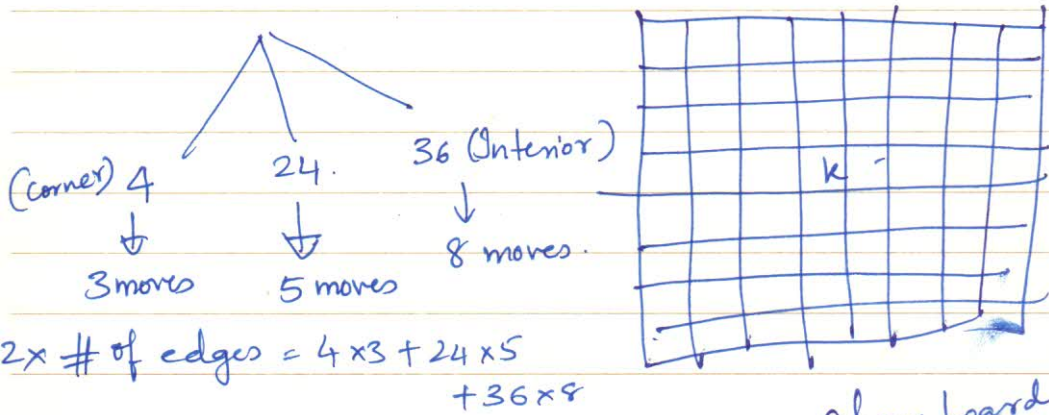 (corner) 4 24. 36 (Interior)
↓ ↓ ↓
3 moves 5 moves 8 moves.
k
2x # of edges = 4x3 + 24x5
+36x8